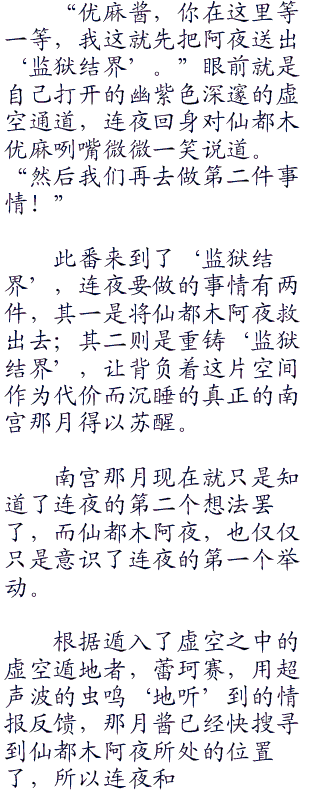 “优麻酱，你在这里等
一等，我这就先把阿夜送出
‘监狱结界’。”眼前就是
自己打开的幽紫色深邃的虚
空通道，连夜回身对仙都木
优麻咧嘴微微一笑说道。
“然后我们再去做第二件事
情！”
此番来到了‘监狱结
界’，连夜要做的事情有两
件，其一是将仙都木阿夜救
出去；其二则是重铸‘监狱
结界’，让背负着这片空间
作为代价而沉睡的真正的南
宫那月得以苏醒。
南宫那月现在就只是知
道了连夜的第二个想法罢
了，而仙都木阿夜，也仅仅
只是意识了连夜的第一个举
动。
根据遁入了虚空之中的
虚空遁地者，蕾珂赛，用超
声波的虫鸣‘地听’到的情
报反馈，那月酱已经快搜寻
到仙都木阿夜所处的位置
了，所以连夜和